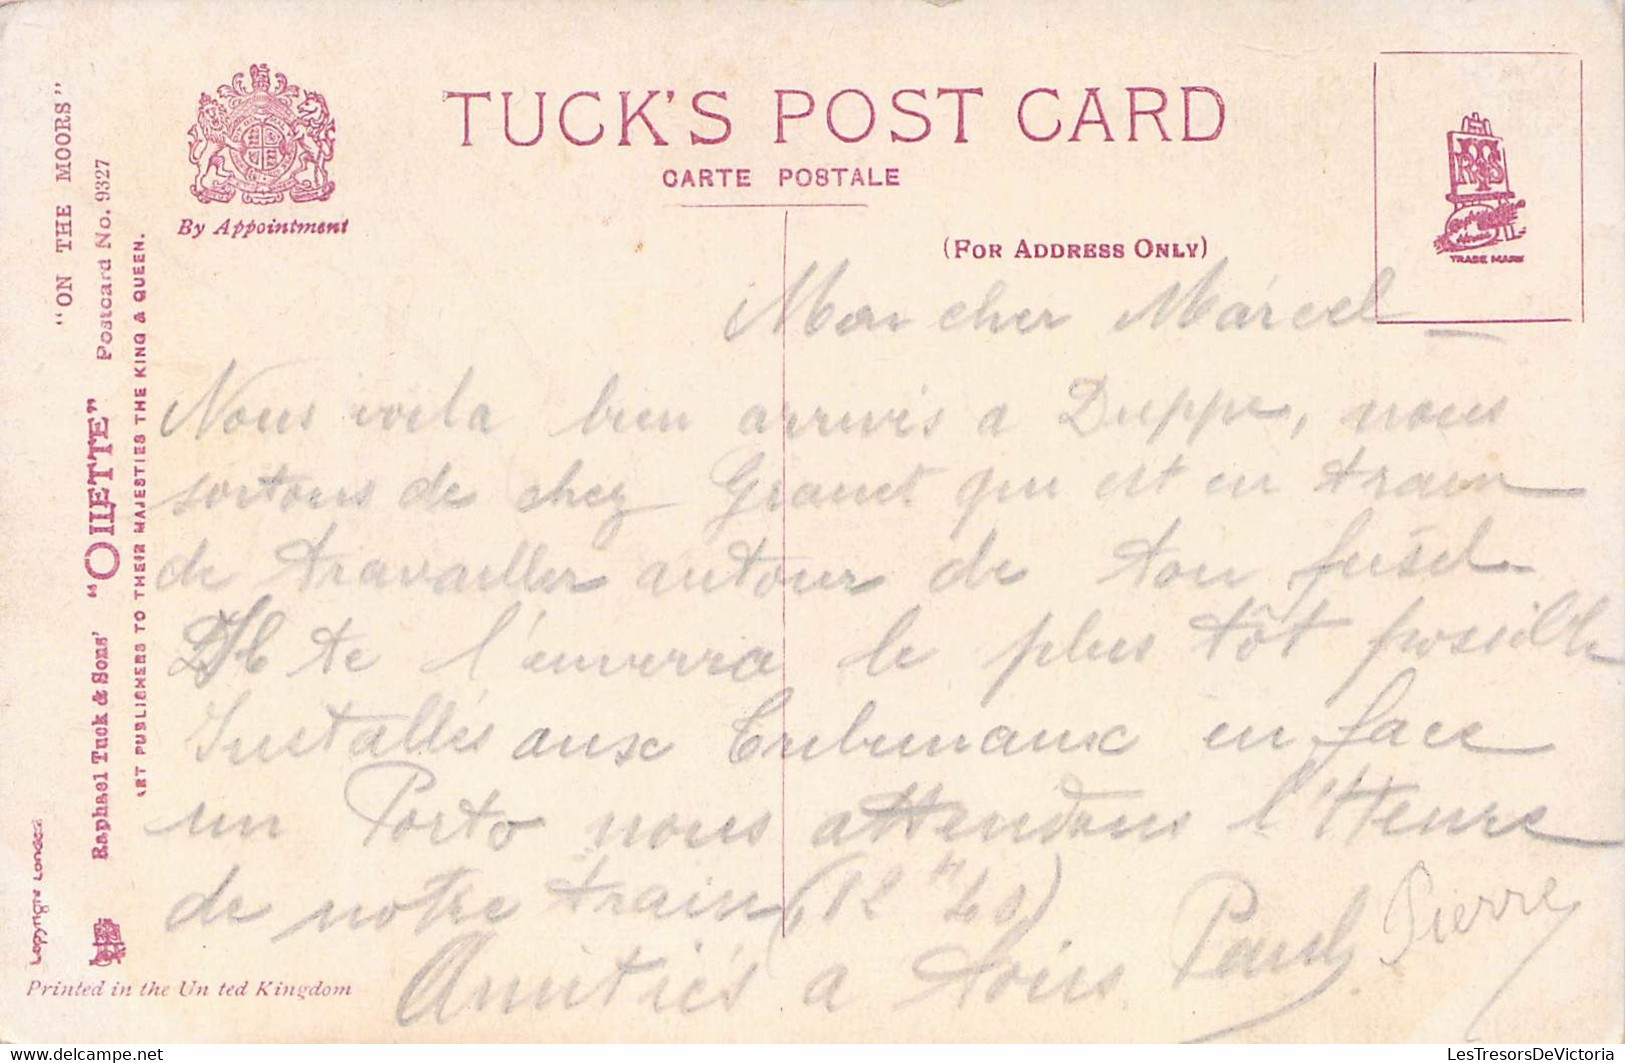 TUCK'S POST CARD
CARTE POSTALE
By Appointment
(FOR ADDRESS ONLY)
TRADE MARK
"ON THE MOORS"
Raphael Tuck & Sons' "OILETTE" Postcard No. 9327
ART PUBLISHERS TO THEIR MAJESTIES THE KING & QUEEN.
Copyright London
Printed in the Un ted Kingdom
Mon cher Marcel
Nous voila bien arrivés a Dieppe, nous
sortons de chez Granet qui est en train
de travailler autour de ton fusil
Il te l'enverra le plus tôt possible
Installés aux Tribunaux en face
un Porto nous attendons l'Heure
de notre train (12 h 40)
Amitiés a tous Paul. Pierre
LesTresorsDeVictoria
delcampe.net